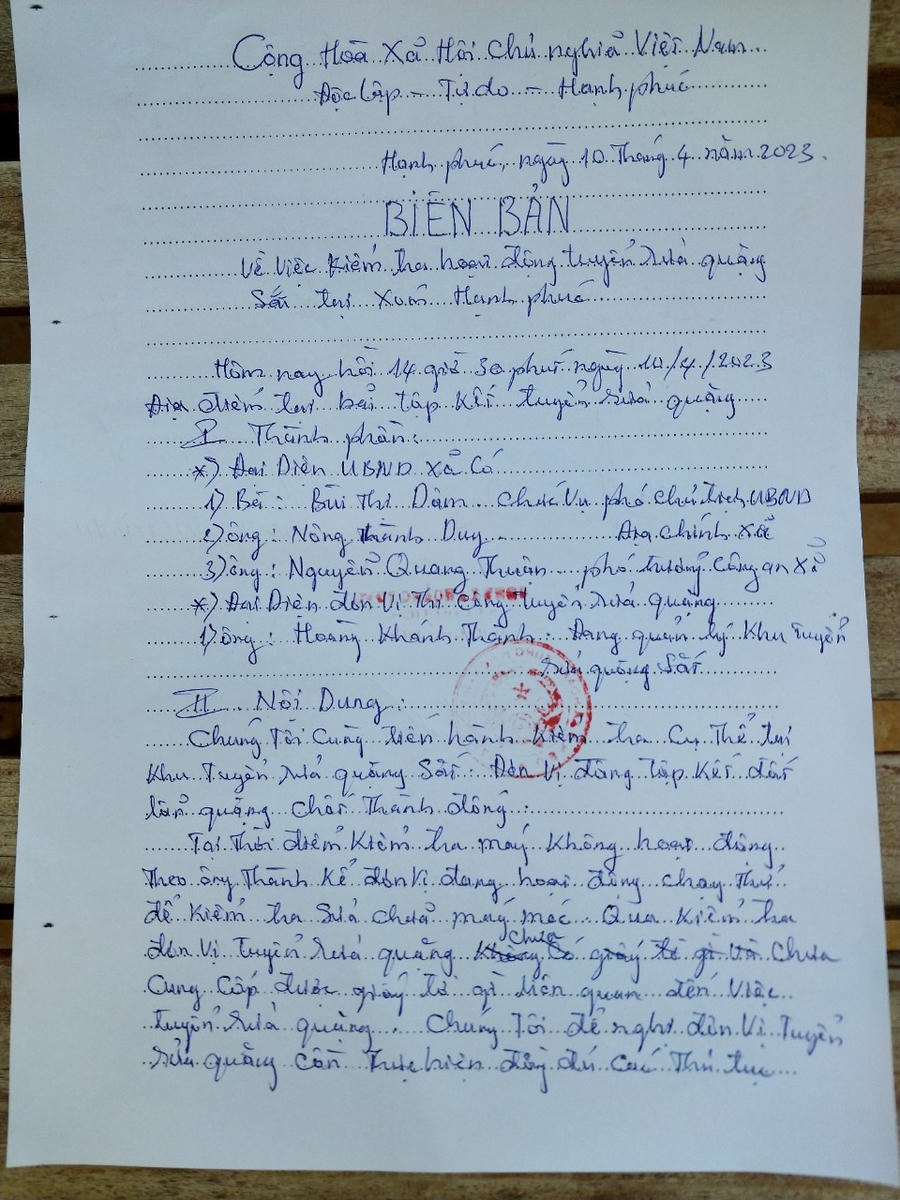 Cộng Hoà Xã Hội Chủ nghĩa Việt Nam
Độc lập - Tự do - Hạnh phúc
Hạnh phúc, ngày 10 Tháng 4 năm 2023.
BIÊN BẢN
Về Việc Kiểm tra hoạt động tuyển rửa quặng
Sắt tại Xóm Hạnh phúc
Hôm nay hồi 14 giờ 30 phút ngày 10/4/2023
Địa điểm tại bãi tập kết tuyển rửa quặng
I Thành phần:
*) Đại Diện UBND xã Có
1) Bà: Bùi Thị Dâm chức vụ phó chủ tịch UBND
2) ông: Nông Thành Duy Địa chính xã
3) ông: Nguyễn Quang Thuận phó trưởng Công an xã
*) Đại Diện đơn Vị Thi công tuyển rửa quặng
1) ông: Hoàng Khánh Thành: Đang quản lý Khu tuyển
rửa quặng sắt
II Nội Dung:
Chúng Tôi Cùng tiến hành Kiểm tra Cụ Thể tại
Khu Tuyển rửa quặng Sắt: Đơn Vị đang tập Kết đất
lẫn quặng chất Thành đống:
Tại Thời điểm Kiểm tra máy Không hoạt động
Theo ông Thành Kể đơn Vị đang hoạt động chạy Thử
để Kiểm tra Sửa chữa máy móc. Qua Kiểm tra
đơn Vị tuyển rửa quặng Không chưa Có giấy tờ gì Và Chưa
Cung Cấp được giấy tờ gì liên quan đến Việc
tuyển rửa quặng. Chúng Tôi đề nghị đơn Vị Tuyển
rửa quặng Cần Thực hiện đầy đủ Các Thủ tục